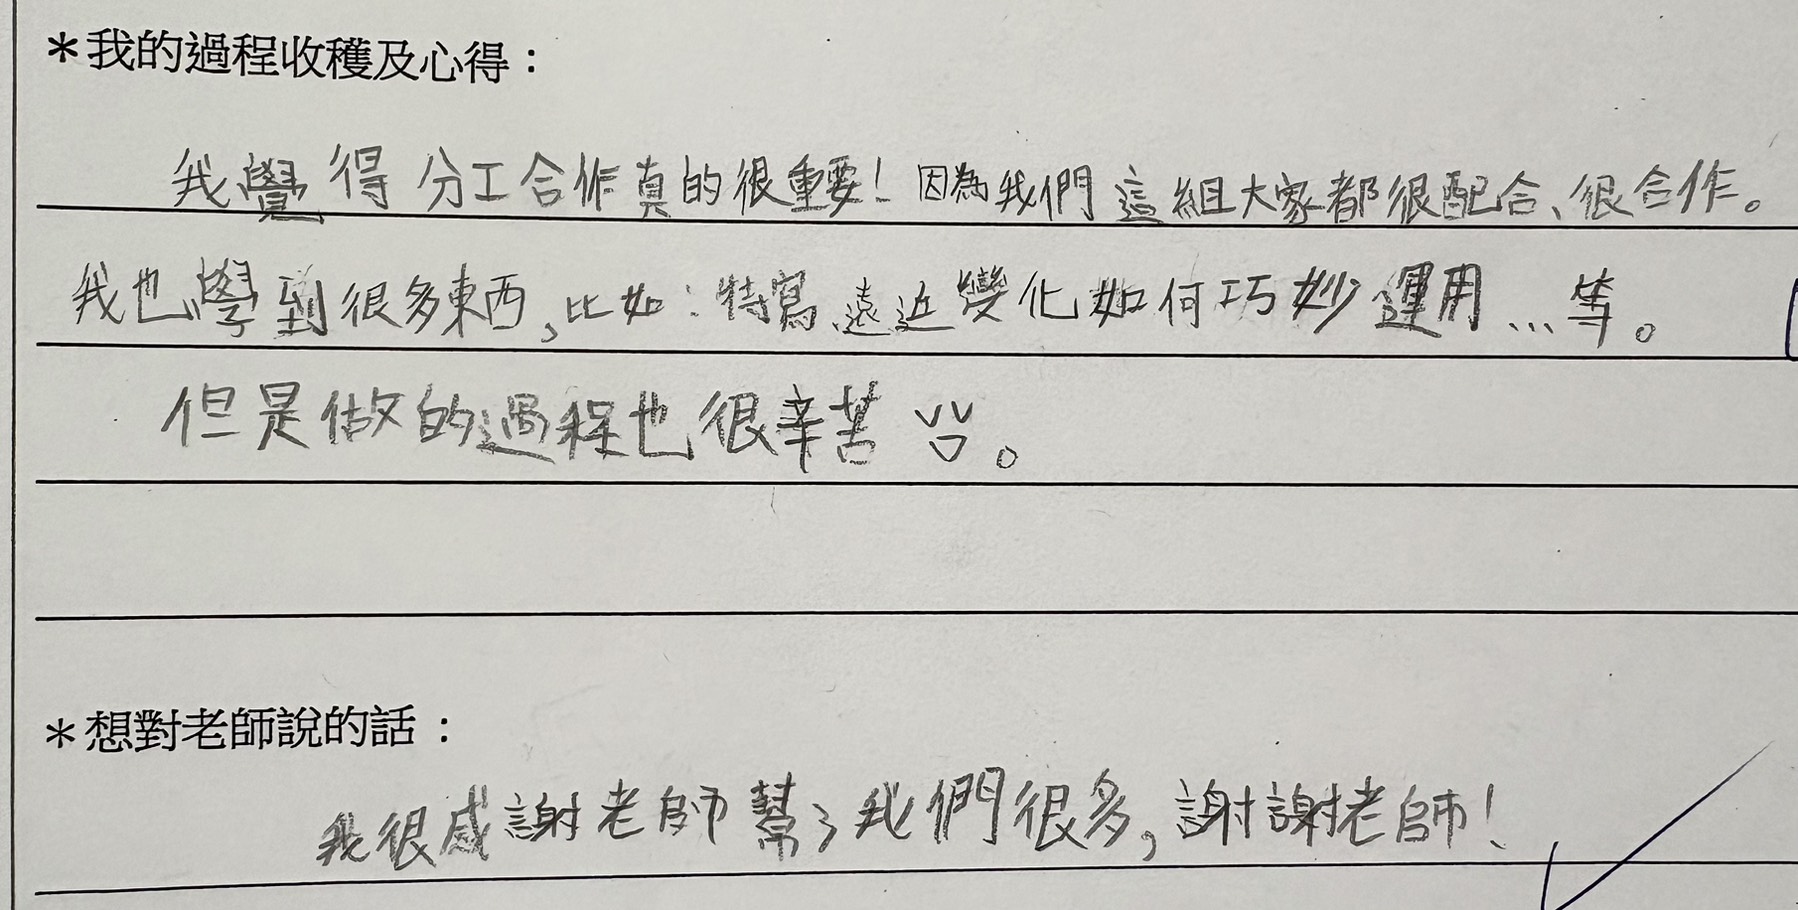 ＊我的過程收穫及心得：
我覺得分工合作真的很重要！因為我們這組大家都很配合、很合作。
我也學到很多東西，比如：特寫、遠近變化如何巧妙運用…等。
但是做的過程也很辛苦。
＊想對老師說的話：
我很感謝老師幫了我們很多，謝謝老師！